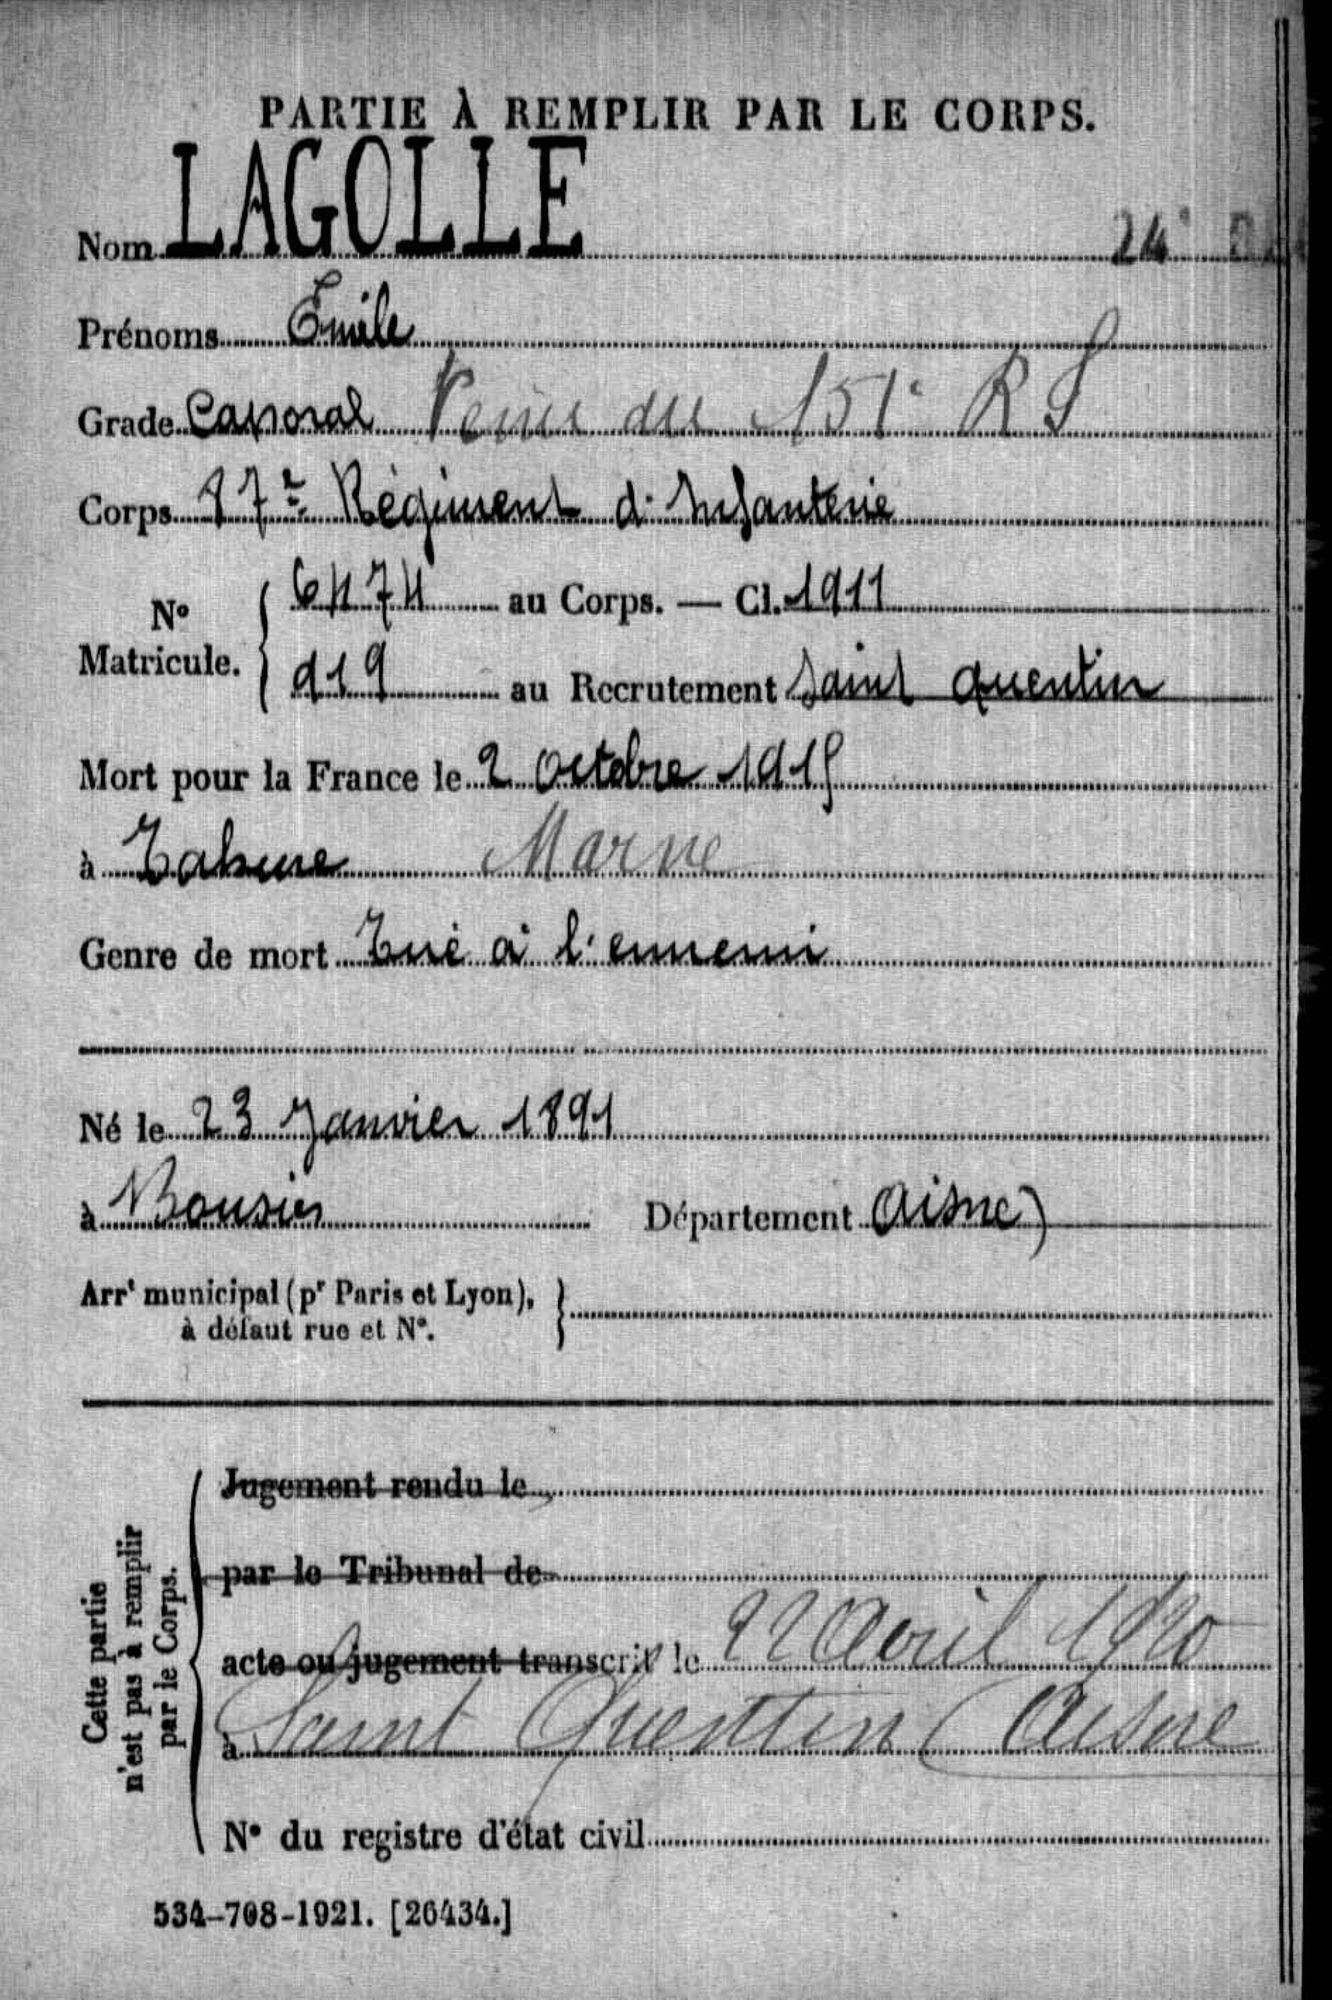 PARTIE À REMPLIR PAR LE CORPS.
Nom LAGOLLE
24
Prénoms Emile
Grade Caporal Venu du 151e R I
Corps 87e Régiment d'Infanterie
No Matricule. { 6474 au Corps. — Cl. 1911
919 au Recrutement Saint Quentin
Mort pour la France le 2 Octobre 1915
à Tahure Marne
Genre de mort Tué à l'ennemi
Né le 23 Janvier 1891
à Département Aisne)
Arrt municipal (pr Paris et Lyon), }
à défaut rue et N°.
Cette partie
n'est pas à remplir
par le Corps.
Jugement rendu le
par le Tribunal de
acte ou jugement transcrit le 22 Avril 1920
à Saint Quentin (Aisne
N° du registre d'état civil
534-708-1921. [26434.]